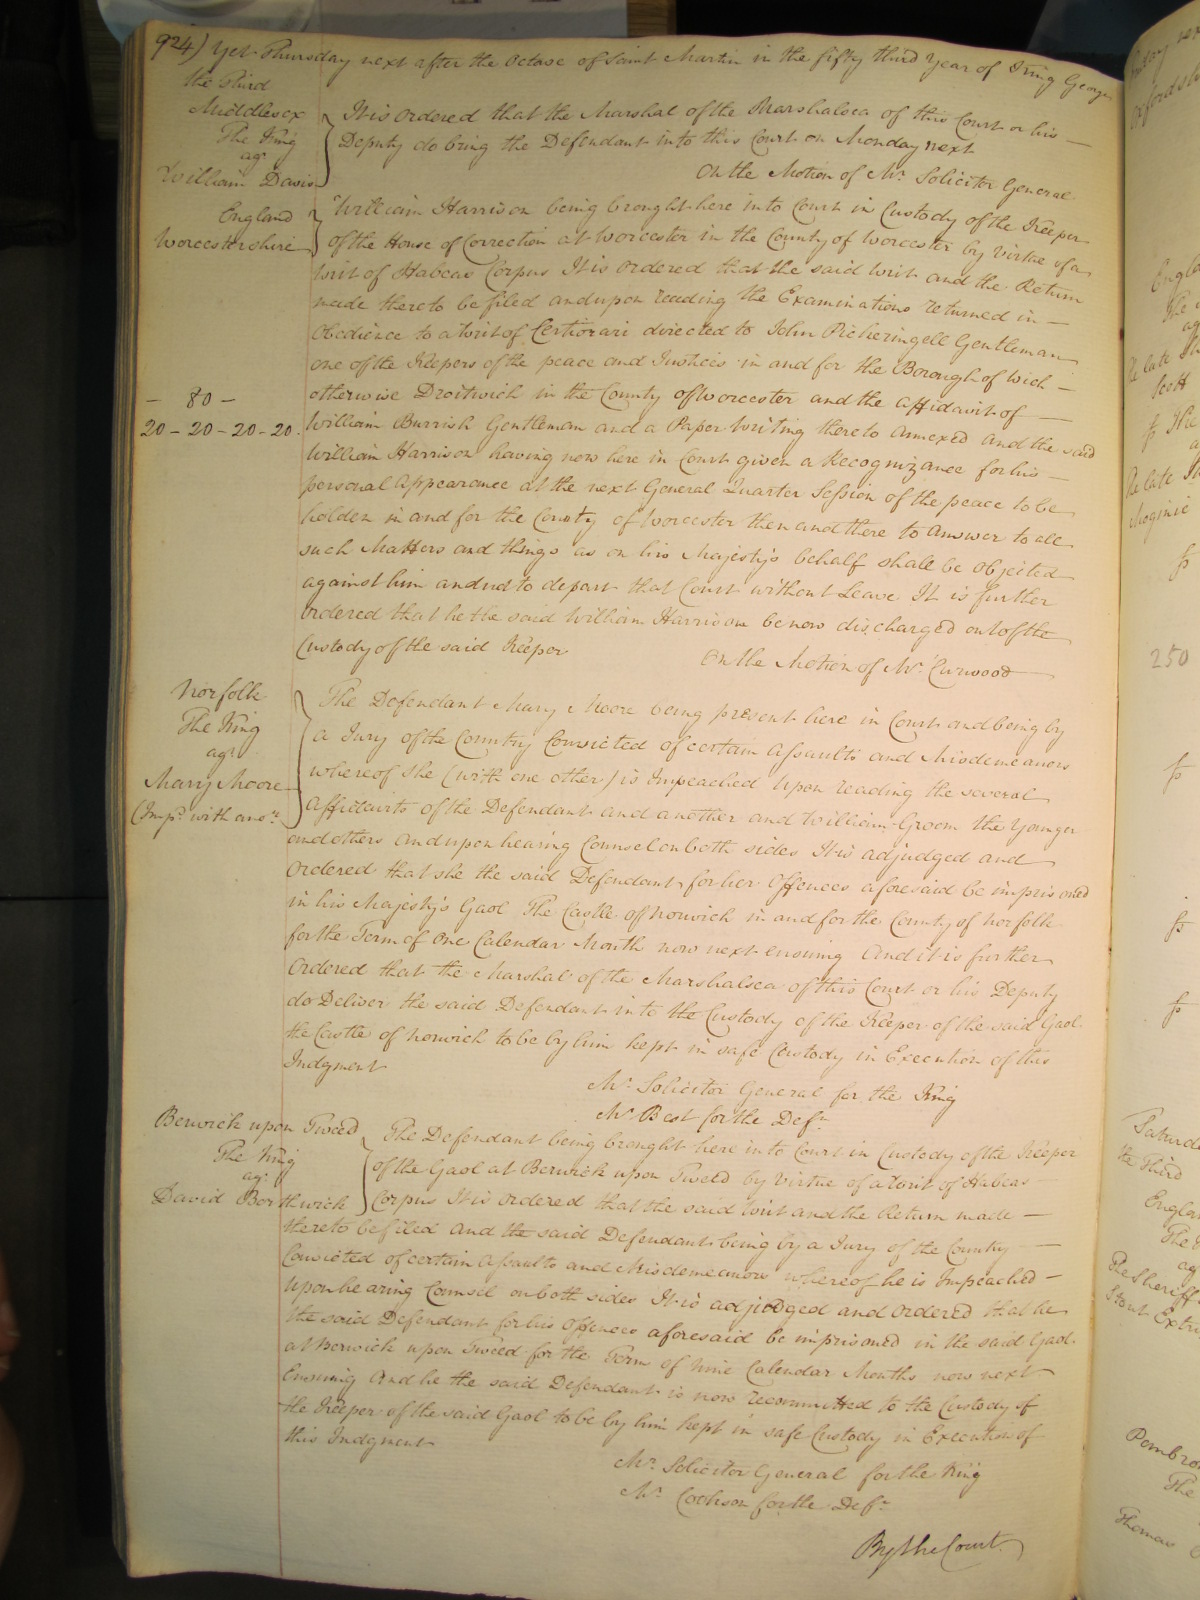 924) Yet Thursday next after the Octave of Saint Martin in the fifty third Year of King George
the Third
Middlesex
The King
agt
William Davis
It is ordered that the Marshal of the Marshalsea of this Court or his —
Deputy do bring the Defendant into this Court on Monday next
On the Motion of Mr. Solicitor General
England
Worcestershire
William Harrison being brought here into Court in Custody of the Keeper
of the House of Correction at Worcester in the County of Worcester by virtue of a
Writ of Habeas Corpus It is ordered that the said Writ and the Return
made thereto be filed and upon reading the Examinations returned in —
Obedience to a Writ of Certiorari directed to John Picheringell Gentleman
one of the Keepers of the peace and Justices in and for the Borough of Wich —
otherwise Droitwich in the County of Worcester and the Affidavit of —
- 80 -
20 - 20 - 20 - 20.
William Burrish Gentleman and a Paper Writing thereto annexed and the said
William Harrison having now here in Court given a Recognizance for his —
personal Appearance at the next General Quarter Session of the peace to be
holden in and for the County of Worcester then and there to answer to all
such Matters and things as on his Majesty's behalf shall be objected
against him and not to depart that Court without Leave It is further
ordered that he the said William Harrison be now discharged out of the
Custody of the said Keeper
On the Motion of Mr. Curwood
Norfolk
The King
agt
Mary Moore
(Imp.d with anor.
The Defendant Mary Moore being present here in Court and being by
a Jury of the Country Convicted of certain Assaults and Misdemeanors
whereof she (with one other) is Impeached Upon reading the several
Affidavits of the Defendant and another and William Groom the Younger
and others and upon hearing Counsel on both sides It is adjudged and
Ordered that she the said Defendant for her Offences aforesaid be imprisoned
in his Majesty's Gaol The Castle of Norwich in and for the County of Norfolk
for the Term of One Calendar Month now next ensuing And it is further
Ordered that the Marshal of the Marshalsea of this Court or his Deputy
do Deliver the said Defendant into the Custody of the Keeper of the said Gaol
the Castle of Norwich to be by him kept in safe Custody in Execution of this
Judgment
Mr. Solicitor General for the King
Mr. Best for the Deft.
Berwick upon Tweed
The King
agt
David Borthwick
The Defendant being brought here into Court in Custody of the Keeper
of the Gaol at Berwick upon Tweed by virtue of a Writ of Habeas
Corpus It is ordered that the said Writ and the Return made —
thereto be filed And the said Defendant being by a Jury of the Country —
Convicted of certain Assaults and Misdemeanors whereof he is Impeached —
upon hearing Counsel on both sides It is adjudged and Ordered that he
the said Defendant for his Offences aforesaid be imprisoned in the said Gaol
at Berwick upon Tweed for the Term of Nine Calendar Months now next
Ensuing And he the said Defendant is now recommitted to the Custody of
the Keeper of the said Gaol to be by him kept in safe Custody in Execution of
this Judgment
Mr. Solicitor General for the King
Mr. Cookson for the Deft.
By the Court.
250